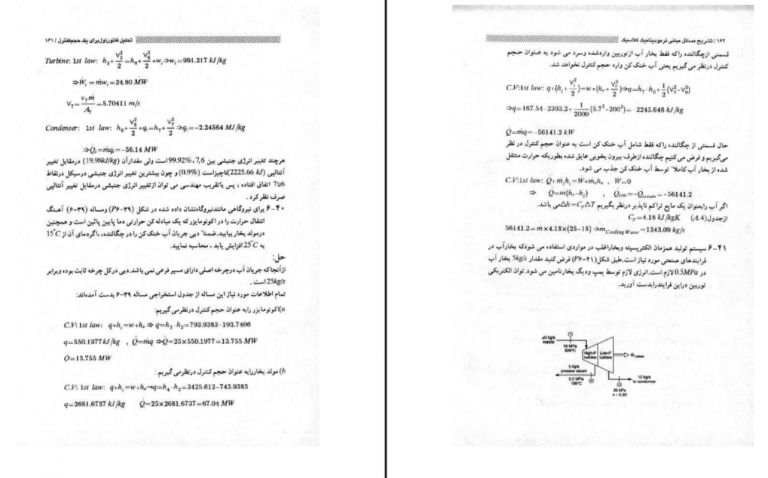 تحلیل قانون اول برای یک حجم کنترل / ۱۶۱
Turbine: 1st law: h₆+V₆²/2=h₇+V₇²/2+wₜ⇒wₜ=991.217 kJ/kg
⇒Ẇₜ=ṁwₜ=24.80 MW
V₇=v₇ṁ/A₇=5.70411 m/s
Condenser: 1st law: h₆+V₆²/2+qₗ=h₇+V₇²/2⇒qₗ=-2.24564 MJ/kg
⇒Q̇ₗ=ṁqₗ=-56.14 MW
هرچند تغییر انرژی جنبشی بین 7,6 ،99.92% است ولی مقدارآن (19.98kJ/kg) درمقابل تغییر
آنتالپی (2225.66 kJ)ناچیزاست (0.9%) و چون بیشترین تغییر انرژی جنبشی درسیکل درنقاط
6تا7 اتفاق افتاده ، پس باتقریب مهندسی می توان ازتغییر انرژی جنبشی درمقابل تغییر آنتالپی
صرف نظر کرد .
۶-۴۰ برای نیروگاهی مانندنیروگاه نشان داده شده در شکل (P۶-۳۹) ومساله (۶-۳۹) آهنگ
انتقال حرارت را در اکونومایزر که یک مبادله کن حرارتی دما پایین پائین است و همچنین
درمولد بخار بیابید. ضمنا" دبی جریان آب خنک کن را در چگالنده، اگردمای آن از 15°C
به 25°C افزایش یابد ، محاسبه نمایید.
حل:
ازآنجاکه جریان آب درچرخه اصلی دارای مسیر فرعی نمی باشد. دبی درکل چرخه ثابت بوده وبرابر
25kg/s است .
تمام اطلاعات مورد نیاز این مساله از جدول استخراجی مساله ۳۹-۶ بدست آمده اند:
a)اکونومایزر رابه عنوان حجم کنترل درنظرمی گیریم:
C.V: 1st law: q+hᵢ=w+hₑ⇒q=h₃-h₂=793.9383-193.7406
q=550.1977kJ/kg , Q̇=ṁq⇒Q̇=25×550.1977=13.755 MW
Q̇=13.755 MW
b) مولد بخاررابه عنوان حجم کنترل درنظر می گیریم:
C.V: 1st law: q+hᵢ=w+hₑ→q=h₄-h₃=3425.612-743.9383
q=2681.6737 kJ/kg Q̇=25×2681.6737=67.04 MW
۱۶۲ / تشریح مسائل مبانی ترمودینامیک کلاسیک
قسمتی ازچگالنده راکه فقط بخار آب ازتوربین واردشده وسرد می شود به عنوان حجم
کنترل درنظر می گیریم یعنی آب خنک کن وارد حجم کنترل نخواهد شد.
C.V:1st law: q+(hᵢ+Vᵢ²/2)=w+(hₑ+Vₑ²/2)⇒q=h₇-h₆+1/2(V₇²-V₆²)
⇒q=167.54-2393.2+1/2000(5.7²-200²)= -2245.648 kJ/kg
Q̇=ṁq=-56141.2 kW
حال قسمتی از چگالنده راکه فقط شامل آب خنک کن است به عنوان حجم کنترل در نظر
می گیریم و فرض می کنیم چگالنده ازطرف بیرون بخوبی عایق شده بطوریکه حرارت منتقل
شده از بخار آب کاملا" توسط آب خنک کن جذب می شود.
C.V:1st law: Q̇+ṁᵢhᵢ=Ẇ+ṁₑhₑ , Ẇ=0
⇒ Q̇=ṁ(hₑ-hᵢ) , Q̇cw=-Q̇steam=-56141.2
اگر آب رابعنوان یک مایع تراکم ناپذیر درنظر بگیریم Δh=CₚΔT می باشد.
ازجدول(A.4) Cₚ=4.18 kJ/kgK
56141.2=ṁ×4.18(25-15)⇒ṁCooling Water=1343.09 kg/s
۶-۴۱ سیستم تولید همزمان الکتریسیته وبخاراغلب در مواردی استفاده می شودکه بخارآب در
فرایندهای صنعتی مورد نیاز است. طبق شکل(P۶-۴۱) فرض کنید مقدار 5kg/s بخار آب
در 0.5MPa لازم است. انرژی لازم توسط پمپ ودیگ بخارتامین می شود. توان الکتریکی
توربین دراین فرایندرابدست آورید.
20 kg/s
supply
10 MPa
500°C
High-P turbine
Low-P turbine
Ẇturbine
5 kg/s
process steam
0.5 MPa
155°C
15 kg/s
to condenser
20 kPa
x = 0.90